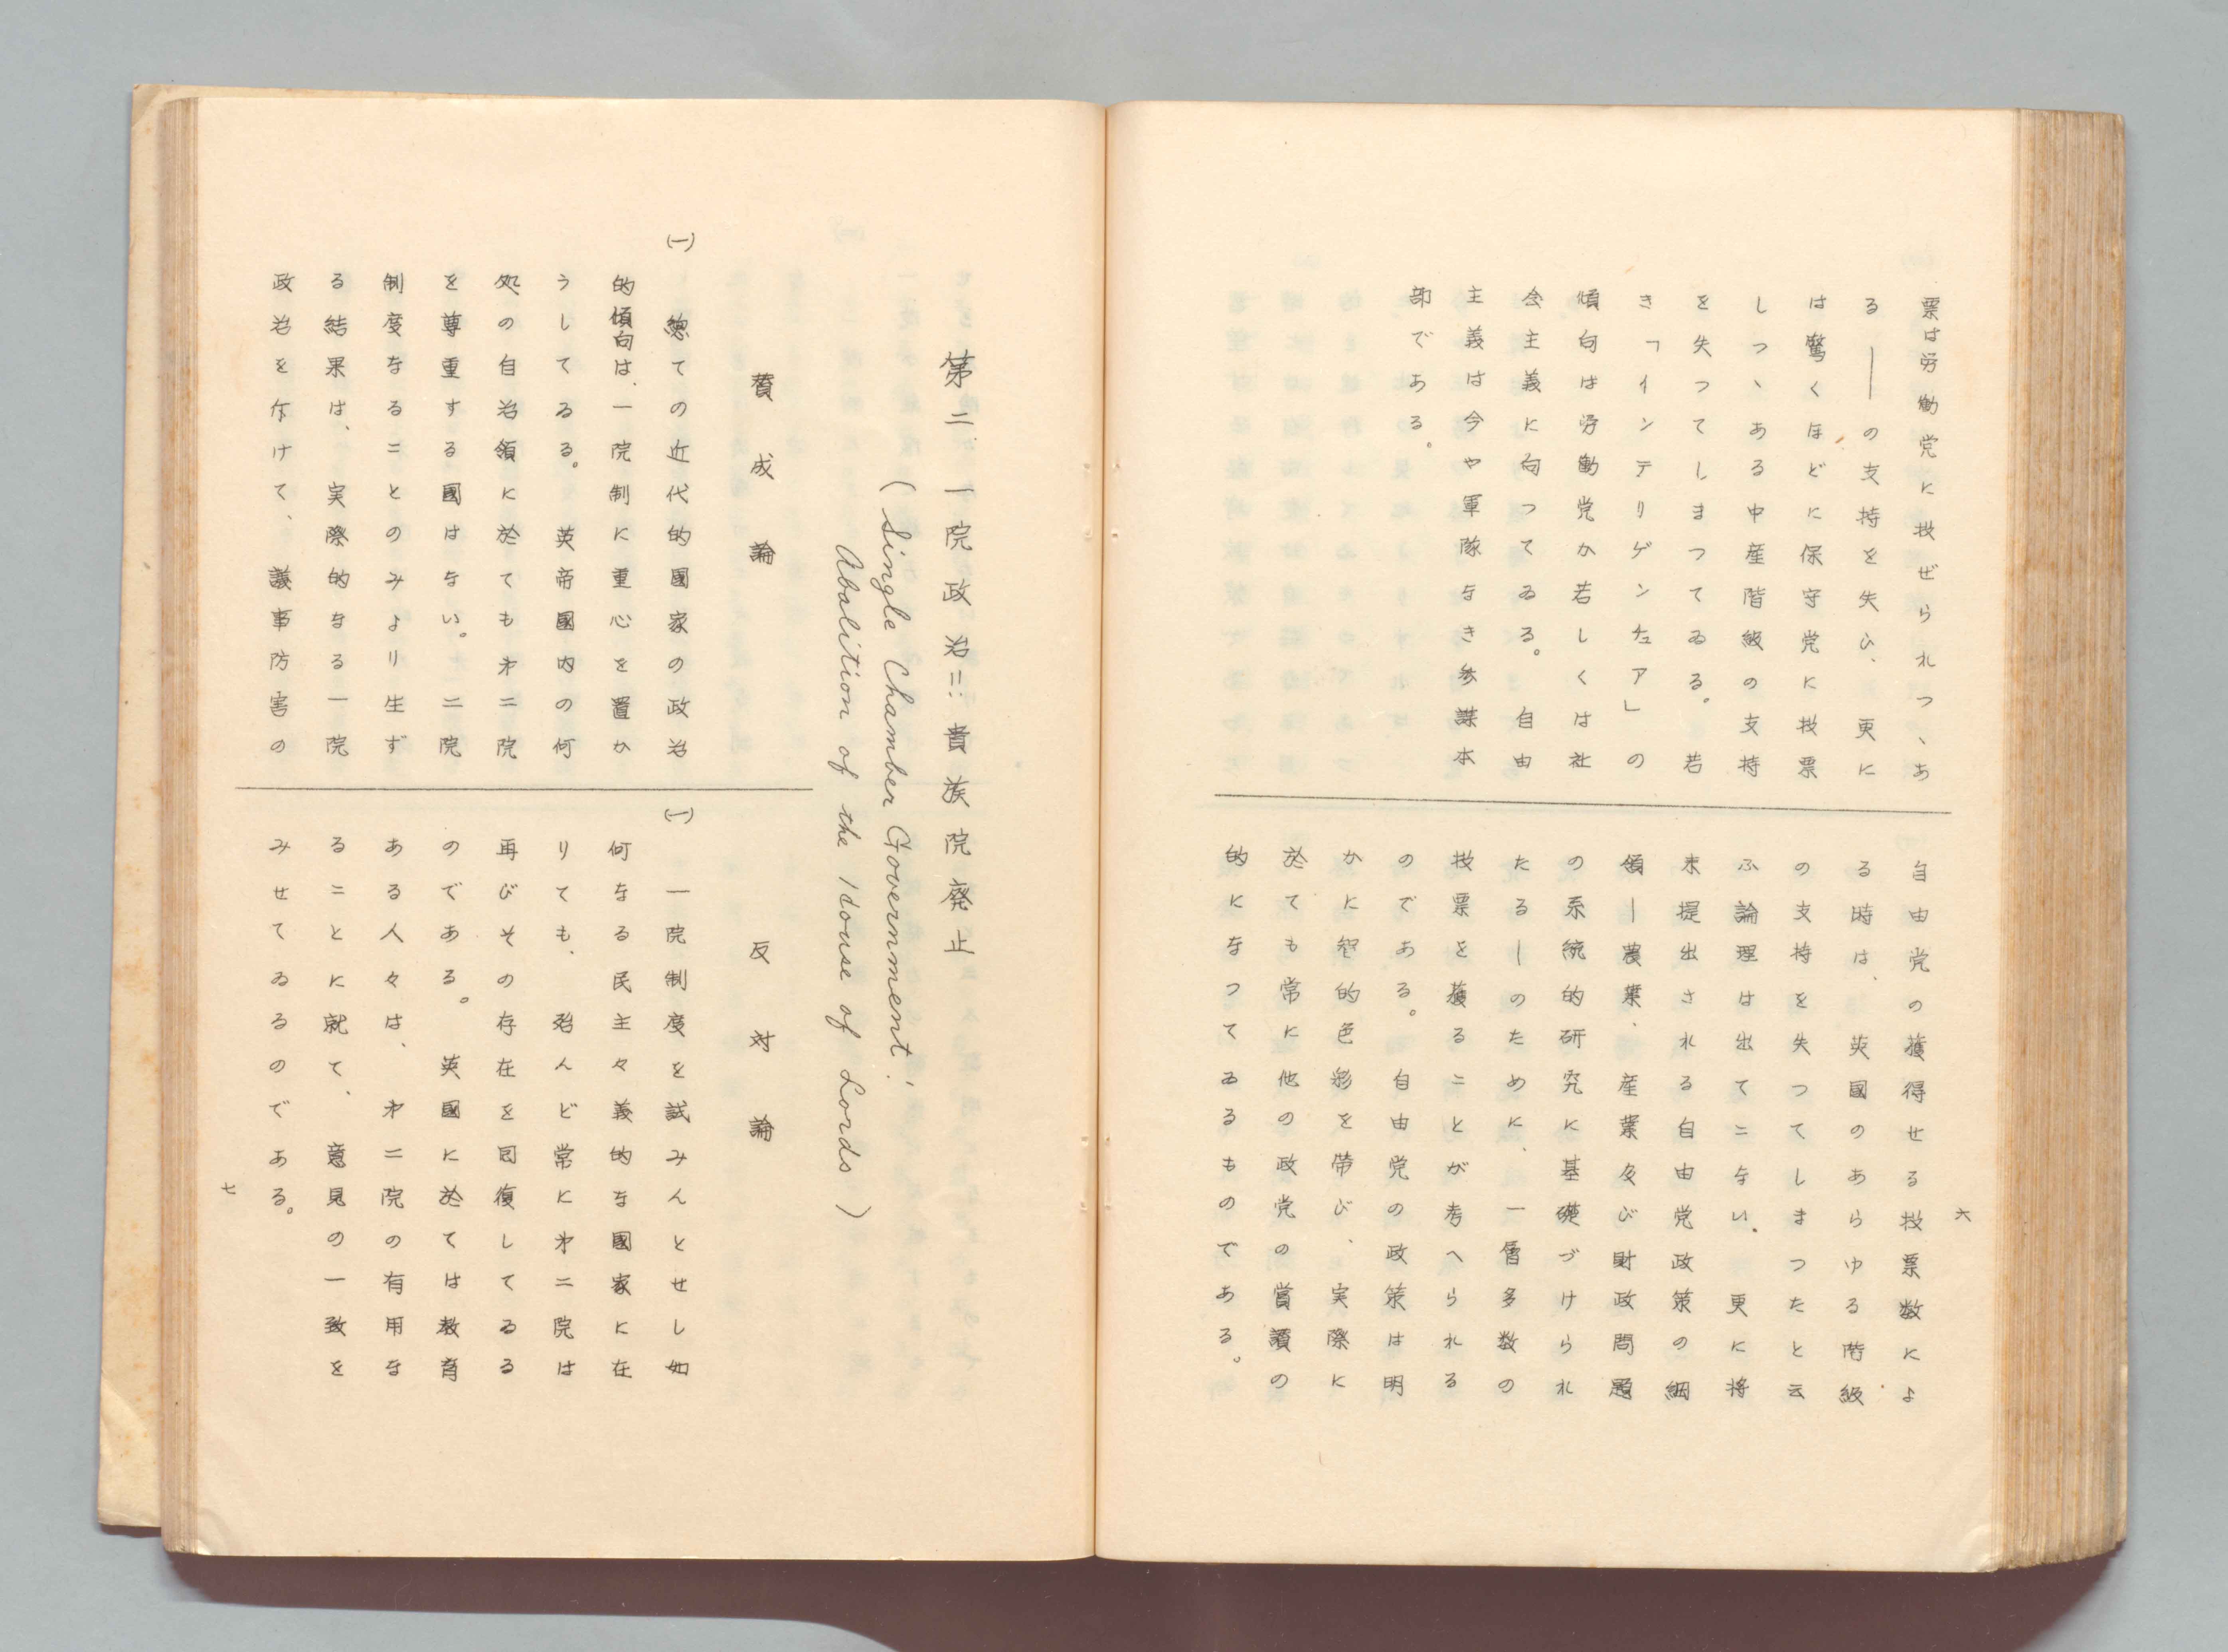 票は労働党に投ぜられつゝあ
る――の支持を失ひ、更に
は驚くほどに保守党に投票
しつゝある中産階級の支持
を失つてしまつてゐる。若
き「インテリゲンチュア」の
傾向は労働党か若しくは社
会主義に向つてゐる。自由
主義は今や軍隊なき参謀本
部である。
自由党の獲得せる投票数によ
る時は、英國のあらゆる階級
の支持を失つてしまつたと云
ふ論理は出てこない。更に将
来提出される自由党政策の綱
領―農業、産業及び財政問題
の系統的研究に基礎づけられ
たる―のために、一層多数の
投票を獲ることが考へられる
のである。自由党の政策は明
かに智的色彩を帯び、実際に
於ても常に他の政党の賞讃の
的になつてゐるものである。
六
第二、一院政治!!貴族院廃止
(Single Chamber Government!
Abalition of the House of Lords)
賛成論
(一)
総ての近代的國家の政治
的傾向は、一院制に重心を置か
うしてゐる。英帝國内の何
処の自治領に於ても才二院
を尊重する國はない。二院
制度なることのみより生ず
る結果は、実際的なる一院
政治を作けて、議事防害の
反対論
(一)
一院制度を試みんとせし如
何なる民主々義的な國家に在
りても、殆んど常に才二院は
再びその存在を回復してゐる
のである。英國に於ては教育
ある人々は、才二院の有用な
ることに就て、意見の一致を
みせてゐるのである。
七